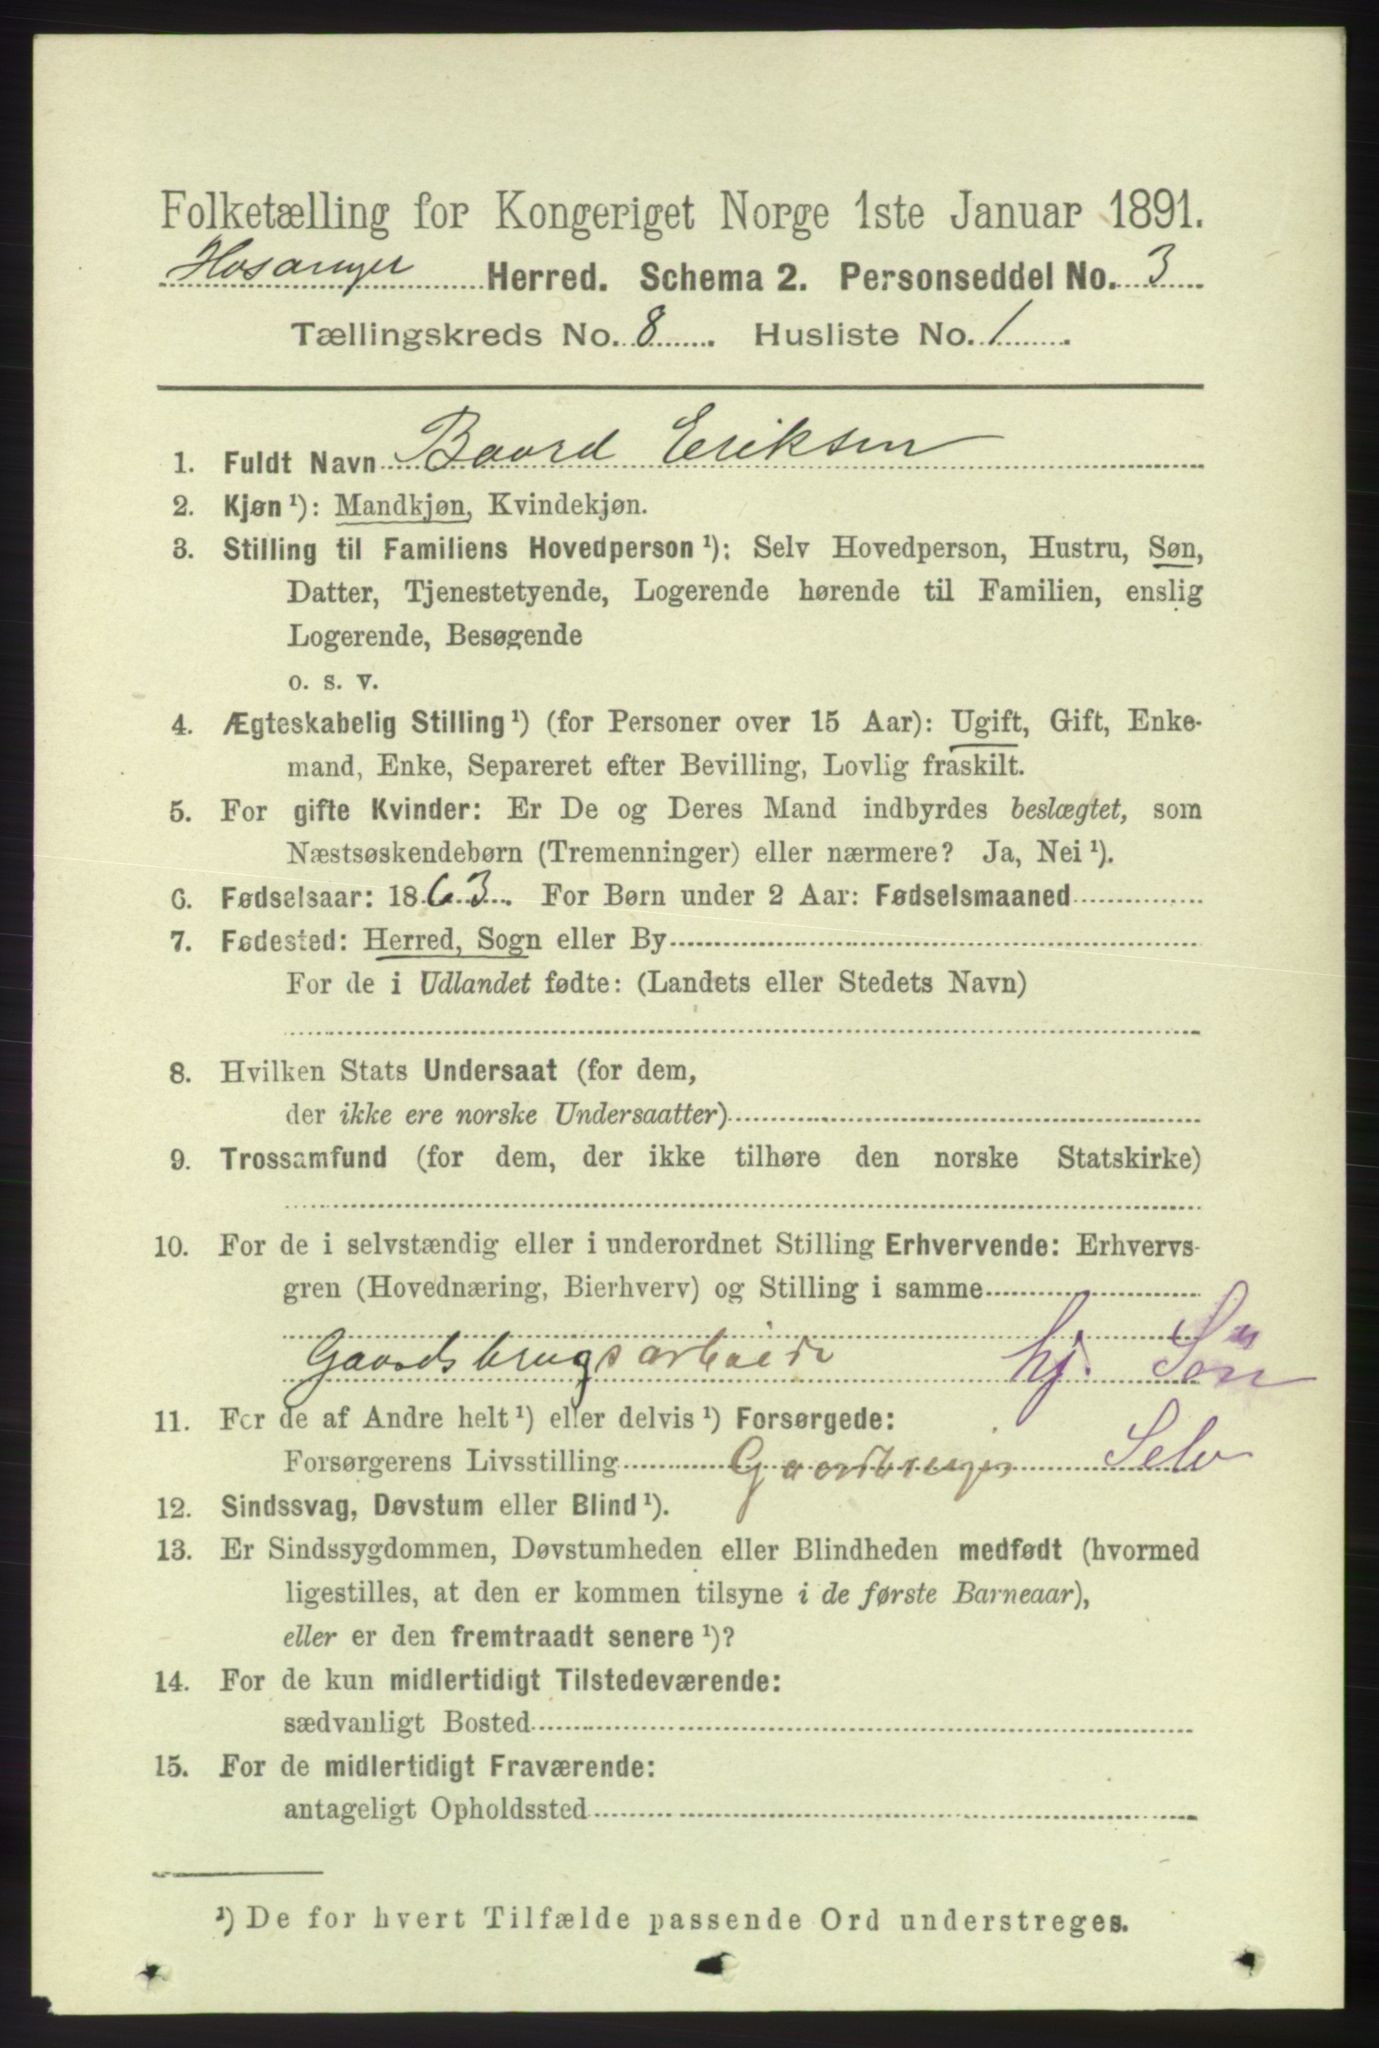 Folketælling for Kongeriget Norge 1ste Januar 1891.
Hosanger Herred. Schema 2. Personseddel No. 3
Tællingskreds No. 8. Husliste No. 1.
1. Fuldt Navn Baard Eriksen
2. Kjøn ¹): Mandkjøn, Kvindekjøn.
3. Stilling til Familiens Hovedperson ¹): Selv Hovedperson, Hustru, Søn,
Datter, Tjenestetyende, Logerende hørende til Familien, enslig
Logerende, Besøgende
o. s. v.
4. Ægteskabelig Stilling ¹) (for Personer over 15 Aar): Ugift, Gift, Enke-
mand, Enke, Separeret efter Bevilling, Lovlig fraskilt.
5. For gifte Kvinder: Er De og Deres Mand indbyrdes beslægtet, som
Næstsøskendebørn (Tremenninger) eller nærmere? Ja, Nei ¹).
6. Fødselsaar: 1863. For Børn under 2 Aar: Fødselsmaaned
7. Fødested: Herred, Sogn eller By
For de i Udlandet fødte: (Landets eller Stedets Navn)
8. Hvilken Stats Undersaat (for dem,
der ikke ere norske Undersaatter)
9. Trossamfund (for dem, der ikke tilhøre den norske Statskirke)
10. For de i selvstændig eller i underordnet Stilling Erhvervende: Erhvervs-
gren (Hovednæring, Bierhverv) og Stilling i samme
Gaardsbrugsarbeide hj. Søn
11. For de af Andre helt ¹) eller delvis ¹) Forsørgede:
Forsørgerens Livsstilling Gaardbruger Selv
12. Sindssvag, Døvstum eller Blind ¹).
13. Er Sindssygdommen, Døvstumheden eller Blindheden medfødt (hvormed
ligestilles, at den er kommen tilsyne i de første Barneaar),
eller er den fremtraadt senere ¹)?
14. For de kun midlertidigt Tilstedeværende:
sædvanligt Bosted
15. For de midlertidigt Fraværende:
antageligt Opholdssted
¹) De for hvert Tilfælde passende Ord understreges.